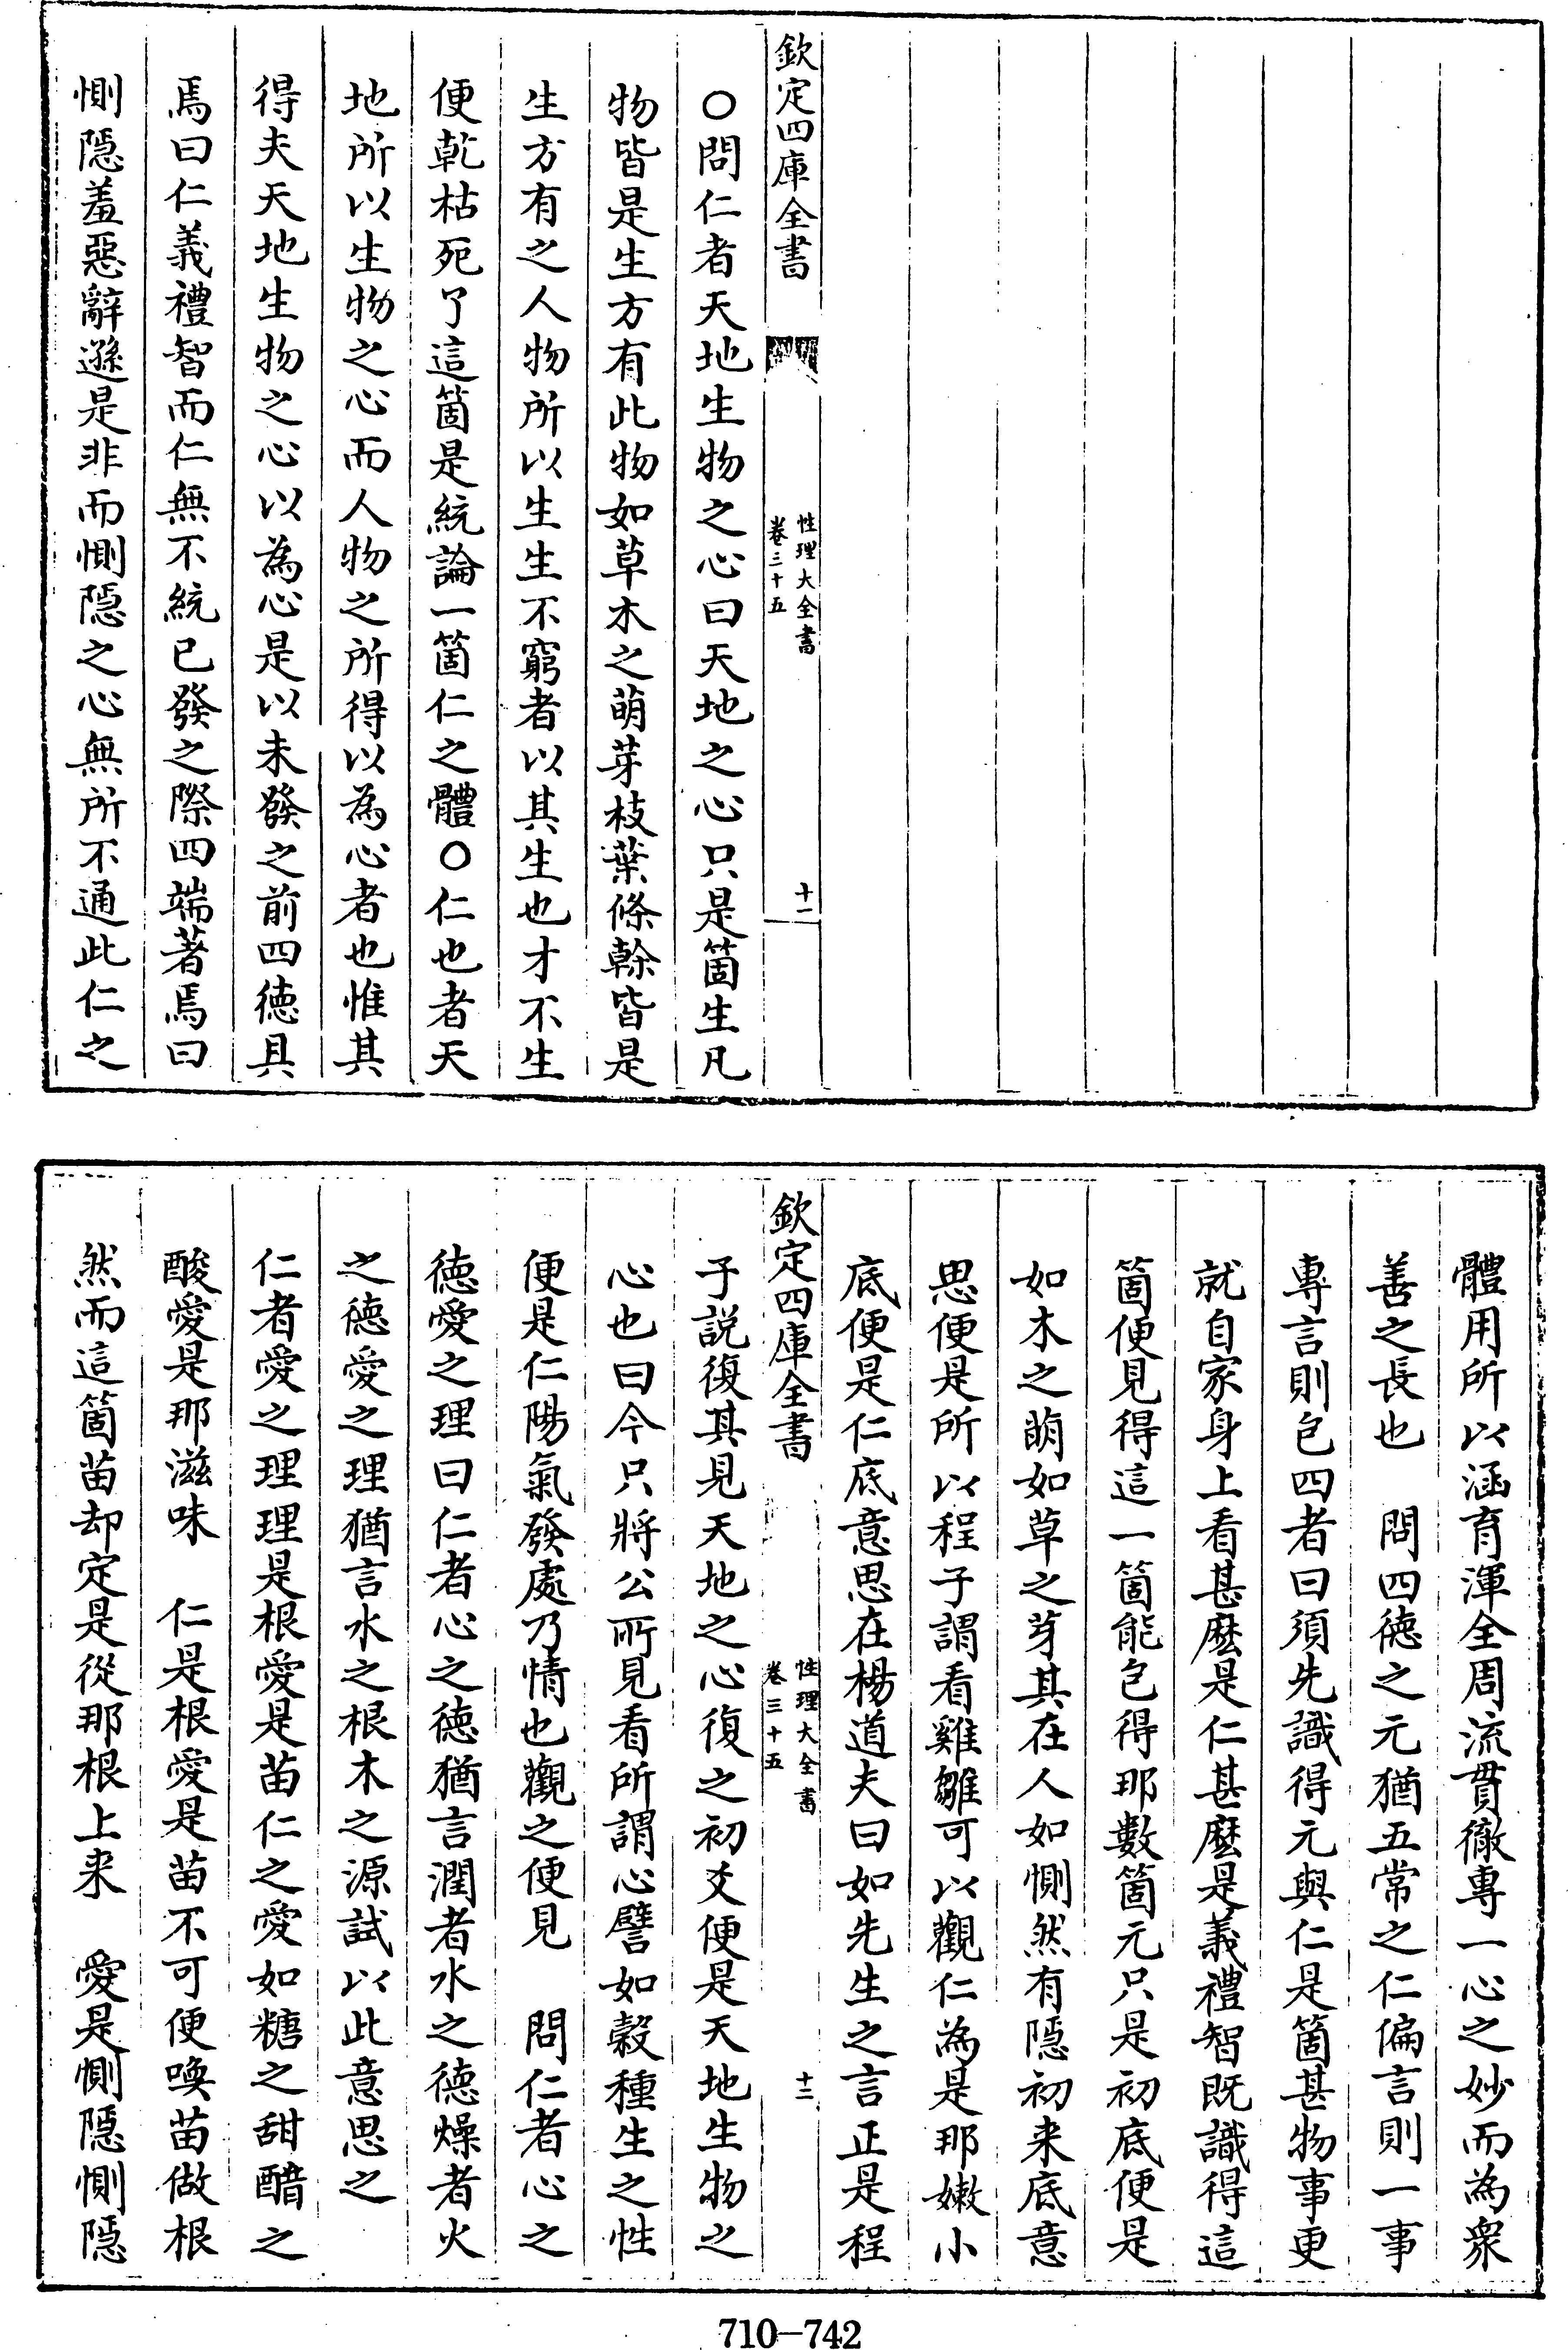 欽定四庫全書
性理大全書
卷三十五
十一
○問仁者天地生物之心曰天地之心只是箇生凡
物皆是生方有此物如草木之萌芽枝葉條榦皆是
生方有之人物所以生生不窮者以其生也才不生
便乾枯死了這箇是統論一箇仁之體○仁也者天
地所以生物之心而人物之所得以為心者也惟其
得夫天地生物之心以為心是以未發之前四徳具
焉曰仁義禮智而仁無不統已發之際四端著焉曰
惻隠羞惡辭遜是非而惻隠之心無所不通此仁之
體用所以涵育渾全周流貫徹專一心之妙而為衆
善之長也　問四徳之元猶五常之仁偏言則一事
專言則包四者曰須先識得元與仁是箇甚物事更
就自家身上看甚麽是仁甚麽是義禮智既識得這
箇便見得這一箇能包得那數箇元只是初底便是
如木之萌如草之芽其在人如惻然有隠初来底意
思便是所以程子謂看雞雛可以觀仁為是那嫩小
底便是仁底意思在楊道夫曰如先生之言正是程
欽定四庫全書
性理大全書
卷三十五
十二
子説復其見天地之心復之初爻便是天地生物之
心也曰今只將公所見看所謂心譬如穀種生之性
便是仁陽氣發處乃情也觀之便見　問仁者心之
徳愛之理曰仁者心之徳猶言潤者水之徳燥者火
之徳愛之理猶言水之根木之源試以此意思之
仁者愛之理理是根愛是苗仁之愛如糖之甜醋之
酸愛是那滋味　仁是根愛是苗不可便喚苗做根
然而這箇苗却定是從那根上来　愛是惻隠惻隠
710-742